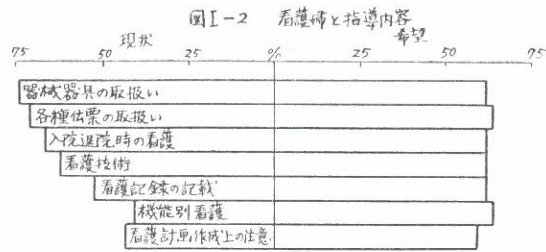 図I-2 看護婦と指導内容
現状 希望
75 50 25 % 25 50 75
器械器具の取扱い
各種伝票の取扱い
入院退院時の看護
看護技術
看護記録の記載
機能別看護
看護計画作成上の注意